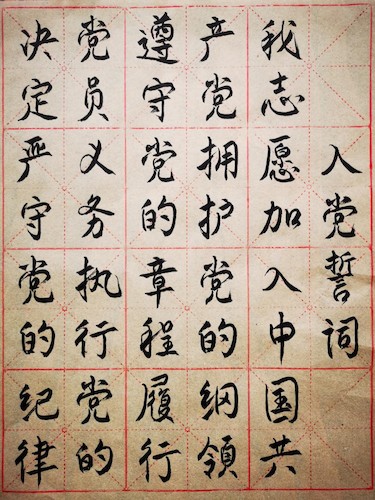 入党誓词
我志愿加入中国共
产党拥护党的纲领
遵守党的章程履行
党员义务执行党的
决定严守党的纪律